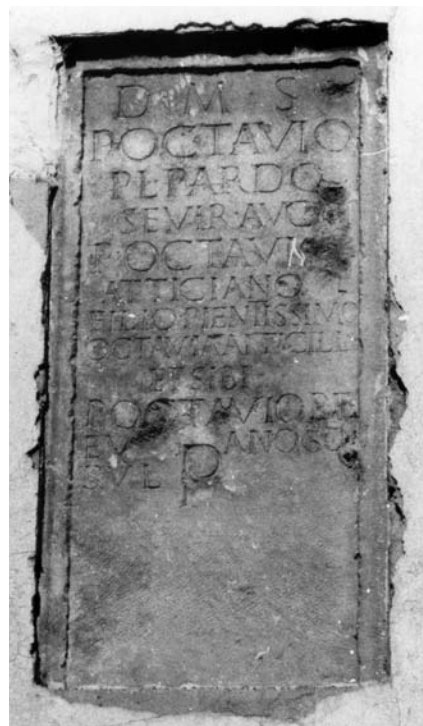 D M S
P·OCTAVIO
P·L·PARDO
SEVIR·AVG
P·OCTAVIO
ATTICIANO
FILIO PIENTISSIMO
OCTAVIA ATTICILLA
ET SIBI
P OCTAVIO
SVL P